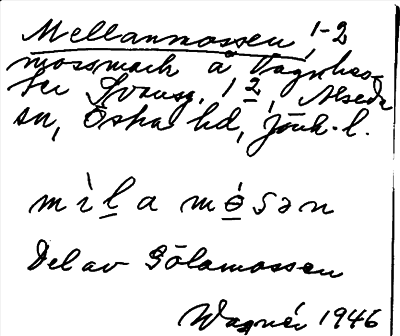 Mellanmossen, 1-2
mossmark å Vagnhes-
ter Svensg. 1 2, Alseda
sn, Östra hd, Jönk. l.
mìla mósən
Del av Gölamossen
Wagnér 1946